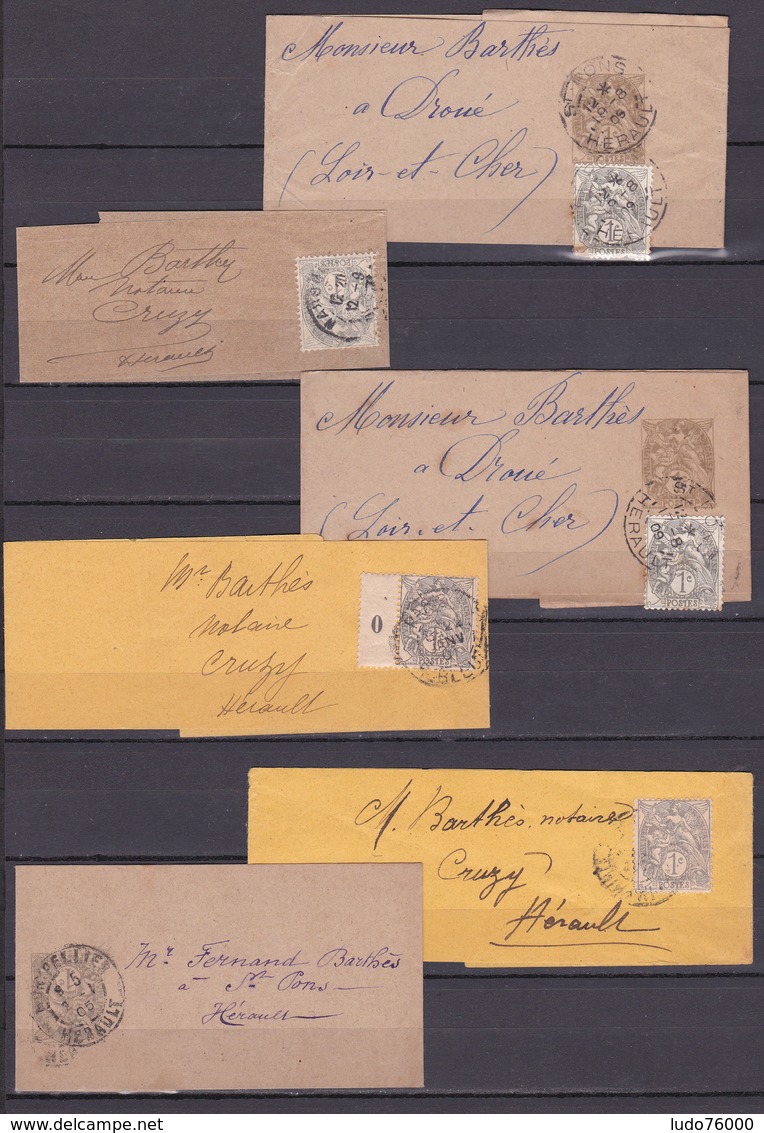 Monsieur Barthès
a Droué
(Loir-et-Cher)
ST PONS
HERAULT
POSTES
Barthès
notaire
Cruzy
Hérault
Monsieur Barthès
a Droué
(Loir-et-Cher)
HERAULT
1c
POSTES
Mr Barthès
notaire
Cruzy
Hérault
0
1c
POSTES
M. Barthès, notaire
Cruzy
Hérault
1c
POSTES
Mr Fernand Barthès
a St Pons
Hérault
HERAULT
ludo76000